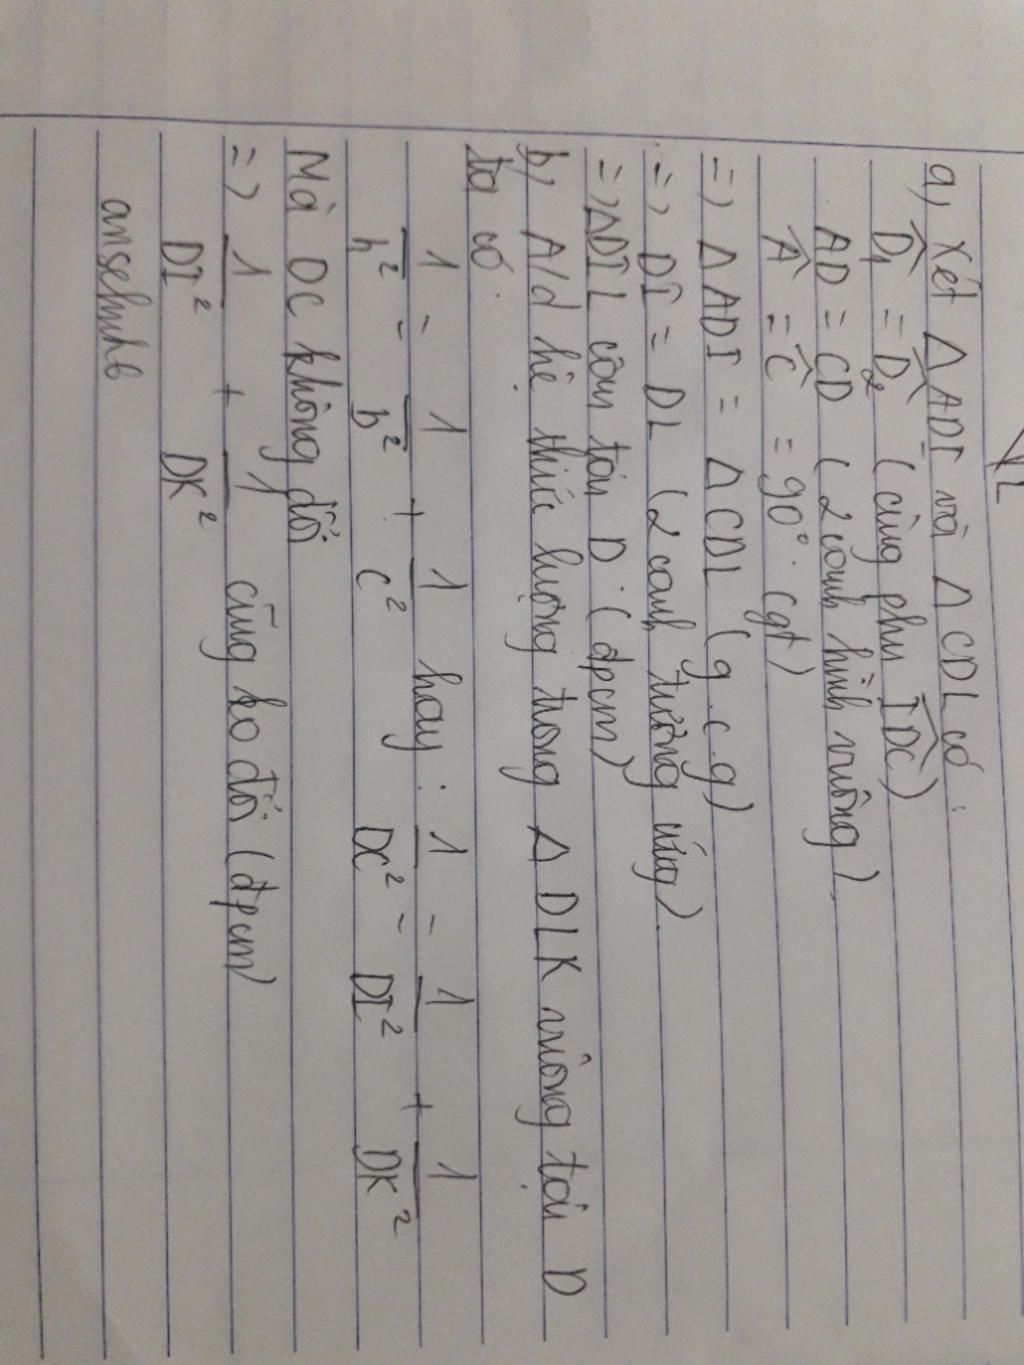 L
a, Xét Δ ADI và Δ CDL có:
D̂₁ = D̂₂ (cùng phụ IDC)
AD = CD ( 2 cạnh hình vuông)
Â = Ĉ = 90° (gt)
=> Δ ADI = Δ CDL (g.c.g)
=> DI = DL (2 cạnh tương ứng)
=> ΔDIL cân tại D. (đpcm)
b, A/d hệ thức lượng trong Δ DLK vuông tại D
ta có:
1/h² = 1/b² + 1/c² hay: 1/DC² = 1/DI² + 1/DK²
Mà DC không đổi
=> 1/DI² + 1/DK² cũng ko đổi (đpcm)